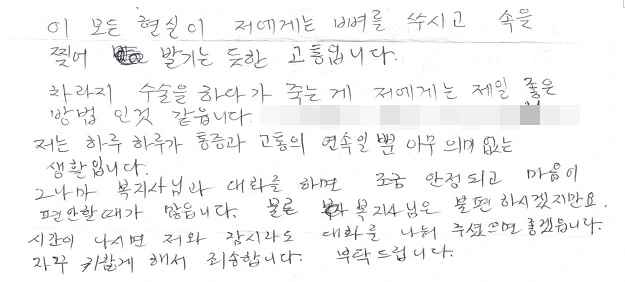 이 모든 현실이 저에게는 뼈를 쑤시고 속을
찢어 발기는 듯한 고통입니다.
차라지 수술을 하다가 죽는 게 저에게는 제일 좋은
방법 인것 같읍니다.
저는 하루 하루가 통증과 고통의 연속일 뿐 아무 의미 없는
생활입니다.
그나마 복지사님과 대화를 하면 조금 안정되고 마음이
편안할때가 많읍니다. 물론 복지사님은 불편 하시겠지만요.
시간이 나시면 저와 잠시라도 대화를 나눠 주셨으면 좋겠읍니다.
자꾸 귀찮게 해서 죄송합니다. 부탁드립니다.